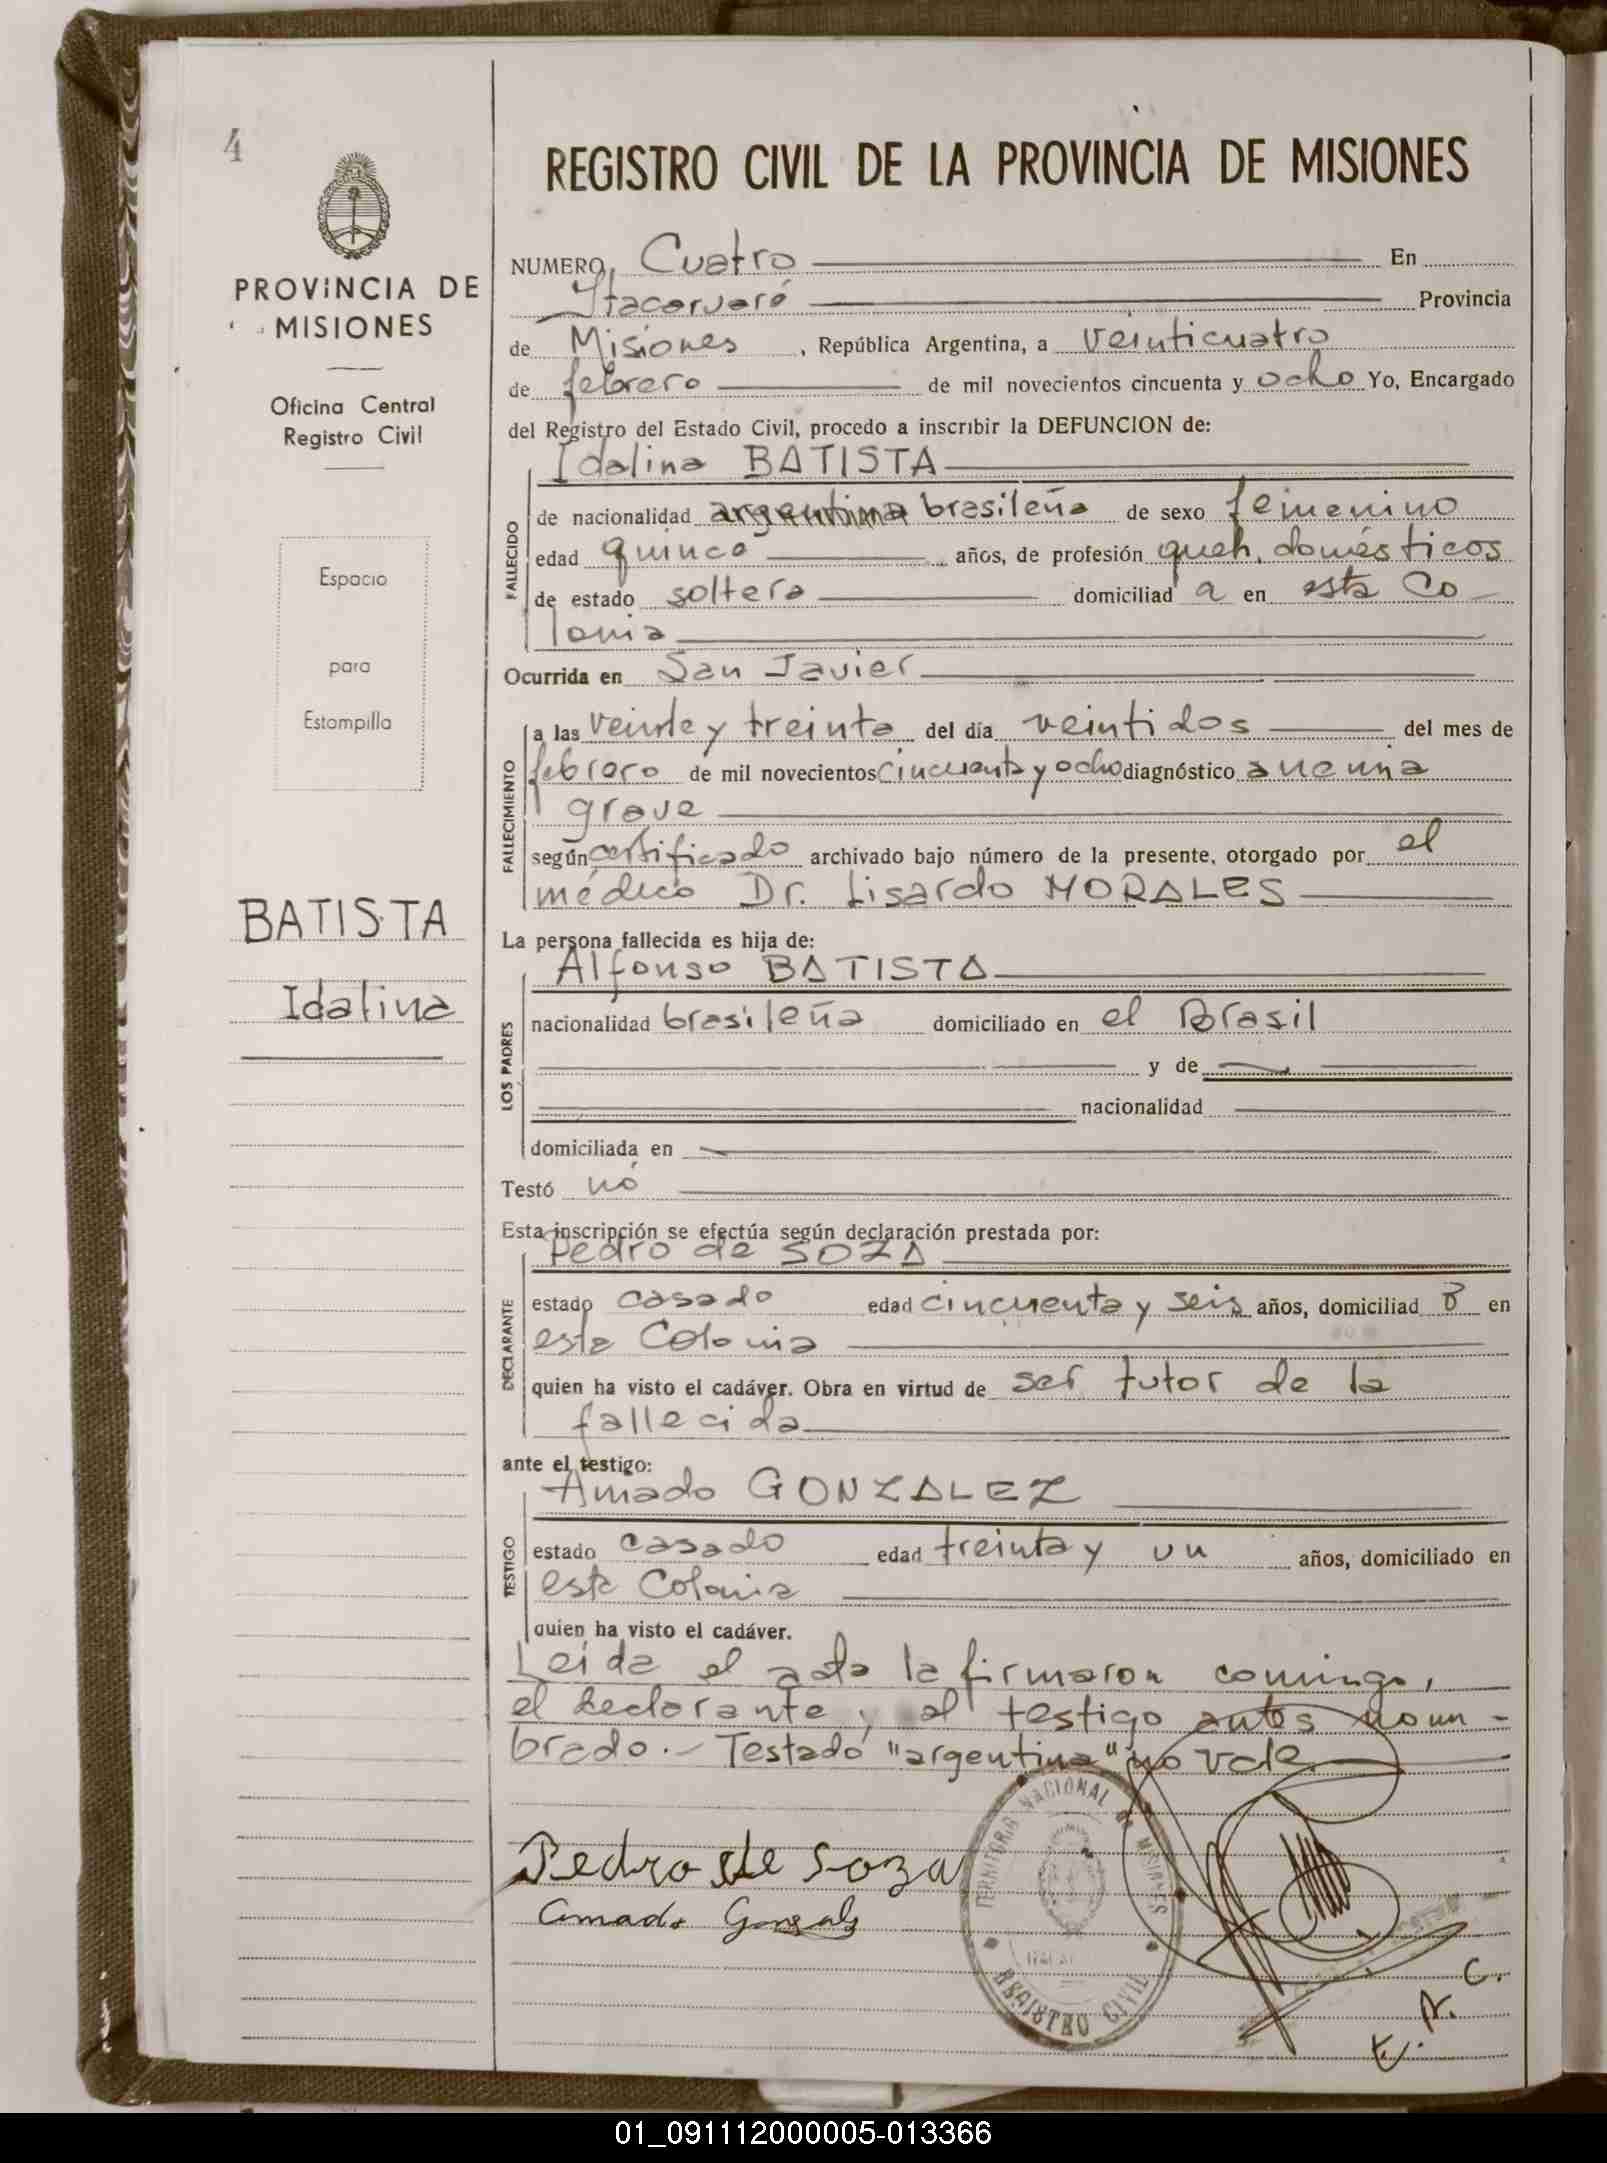 4
REGISTRO CIVIL DE LA PROVINCIA DE MISIONES
PROVINCIA DE
MISIONES
Oficina Central
Registro Civil
Espacio
para
Estampilla
BATISTA
Idalina
NUMERO Cuatro En
Itacaruaré Provincia
de Misiones, República Argentina, a veinticuatro
de febrero de mil novecientos cincuenta y ocho Yo, Encargado
del Registro del Estado Civil, procedo a inscribir la DEFUNCION de:
Idalina BATISTA
FALLECIDO
de nacionalidad argentina brasileña de sexo femenino
edad quince años, de profesión queh. domésticos
de estado soltera domiciliad a en esta Co-
lonia
Ocurrida en San Javier
FALLECIMIENTO
a las veinte y treinta del día veintidos del mes de
febrero de mil novecientos cincuenta y ocho diagnóstico anemia
grave
según certificado archivado bajo número de la presente, otorgado por el
médico Dr. Lisardo MORALES
La persona fallecida es hija de:
Alfonso BATISTA
LOS PADRES
nacionalidad brasileña domiciliado en el Brasil
y de
nacionalidad
domiciliada en
Testó nó
Esta inscripción se efectúa según declaración prestada por:
Pedro de SOZA
DECLARANTE
estado casado edad cincuenta y seis años, domiciliad o en
esta Colonia
quien ha visto el cadáver. Obra en virtud de ser tutor de la
fallecida
ante el testigo:
Amado GONZALEZ
TESTIGO
estado casado edad treinta y un años, domiciliado en
esta Colonia
quien ha visto el cadáver.
Leida el acta la firmaron conmigo,
el declarante y el testigo antes nom-
brado.- Testado "argentina" no vale.
Pedro de Soza
Amado Gonzalz
TERRITORIO NACIONAL DE MISIONES
REGISTRO CIVIL
E. R. C.
01_091112000005-013366